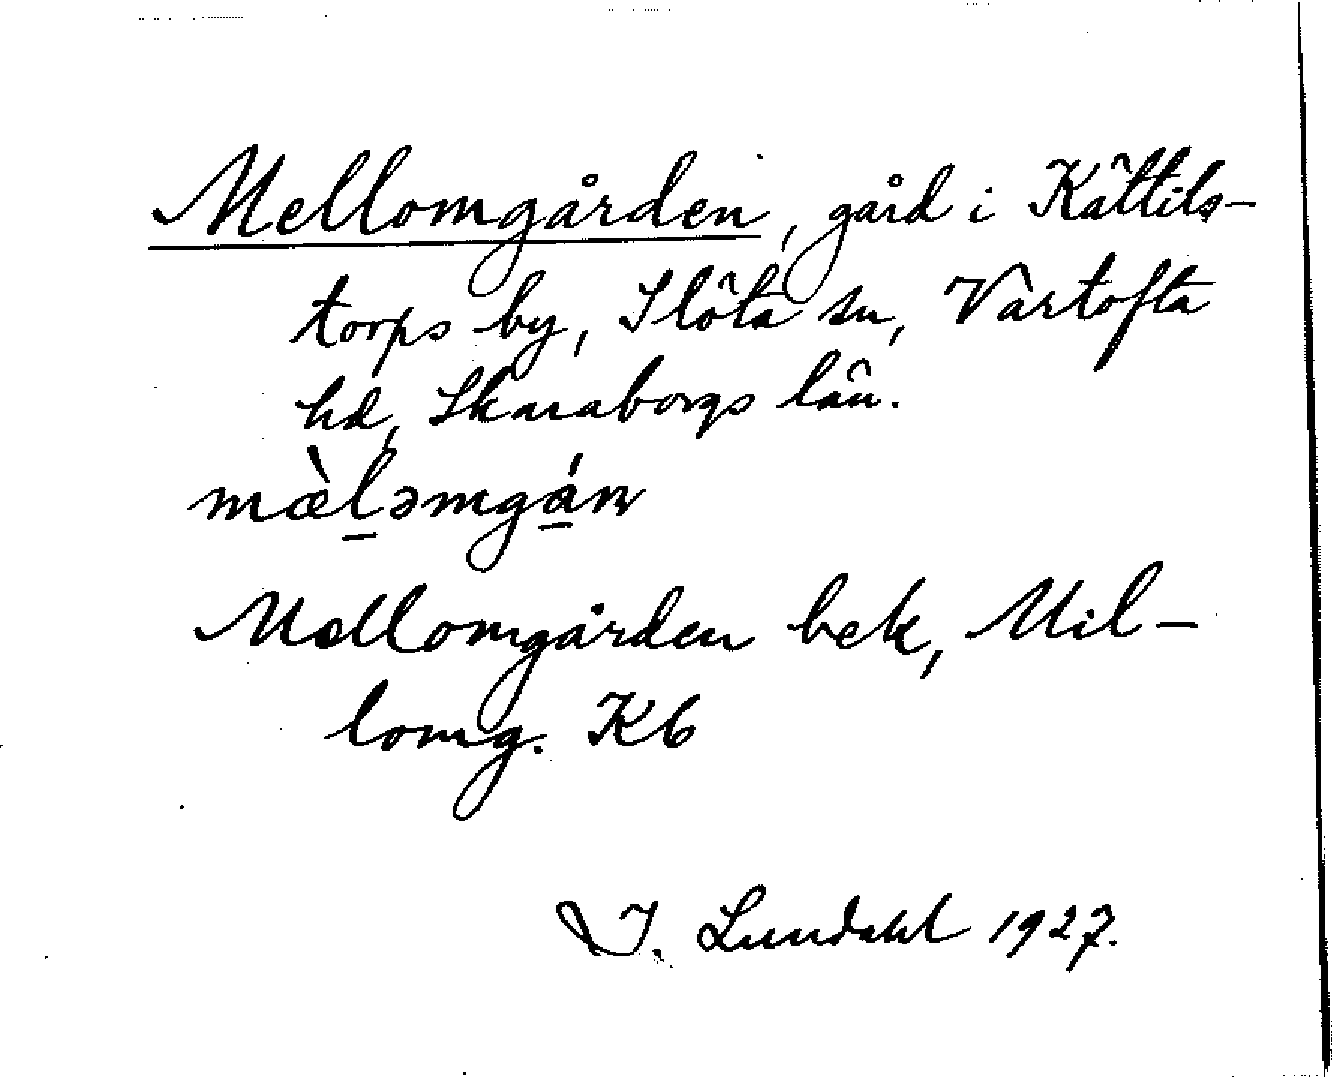 Mellomgården, gård i Kättils-
torps by, Slöta sn, Vartofta
hd, Skaraborgs län.
mæ̀l̠əmgá̠ɳ
Mellomgården bek, Mil-
lomg. Kb
I. Lundahl 1927.